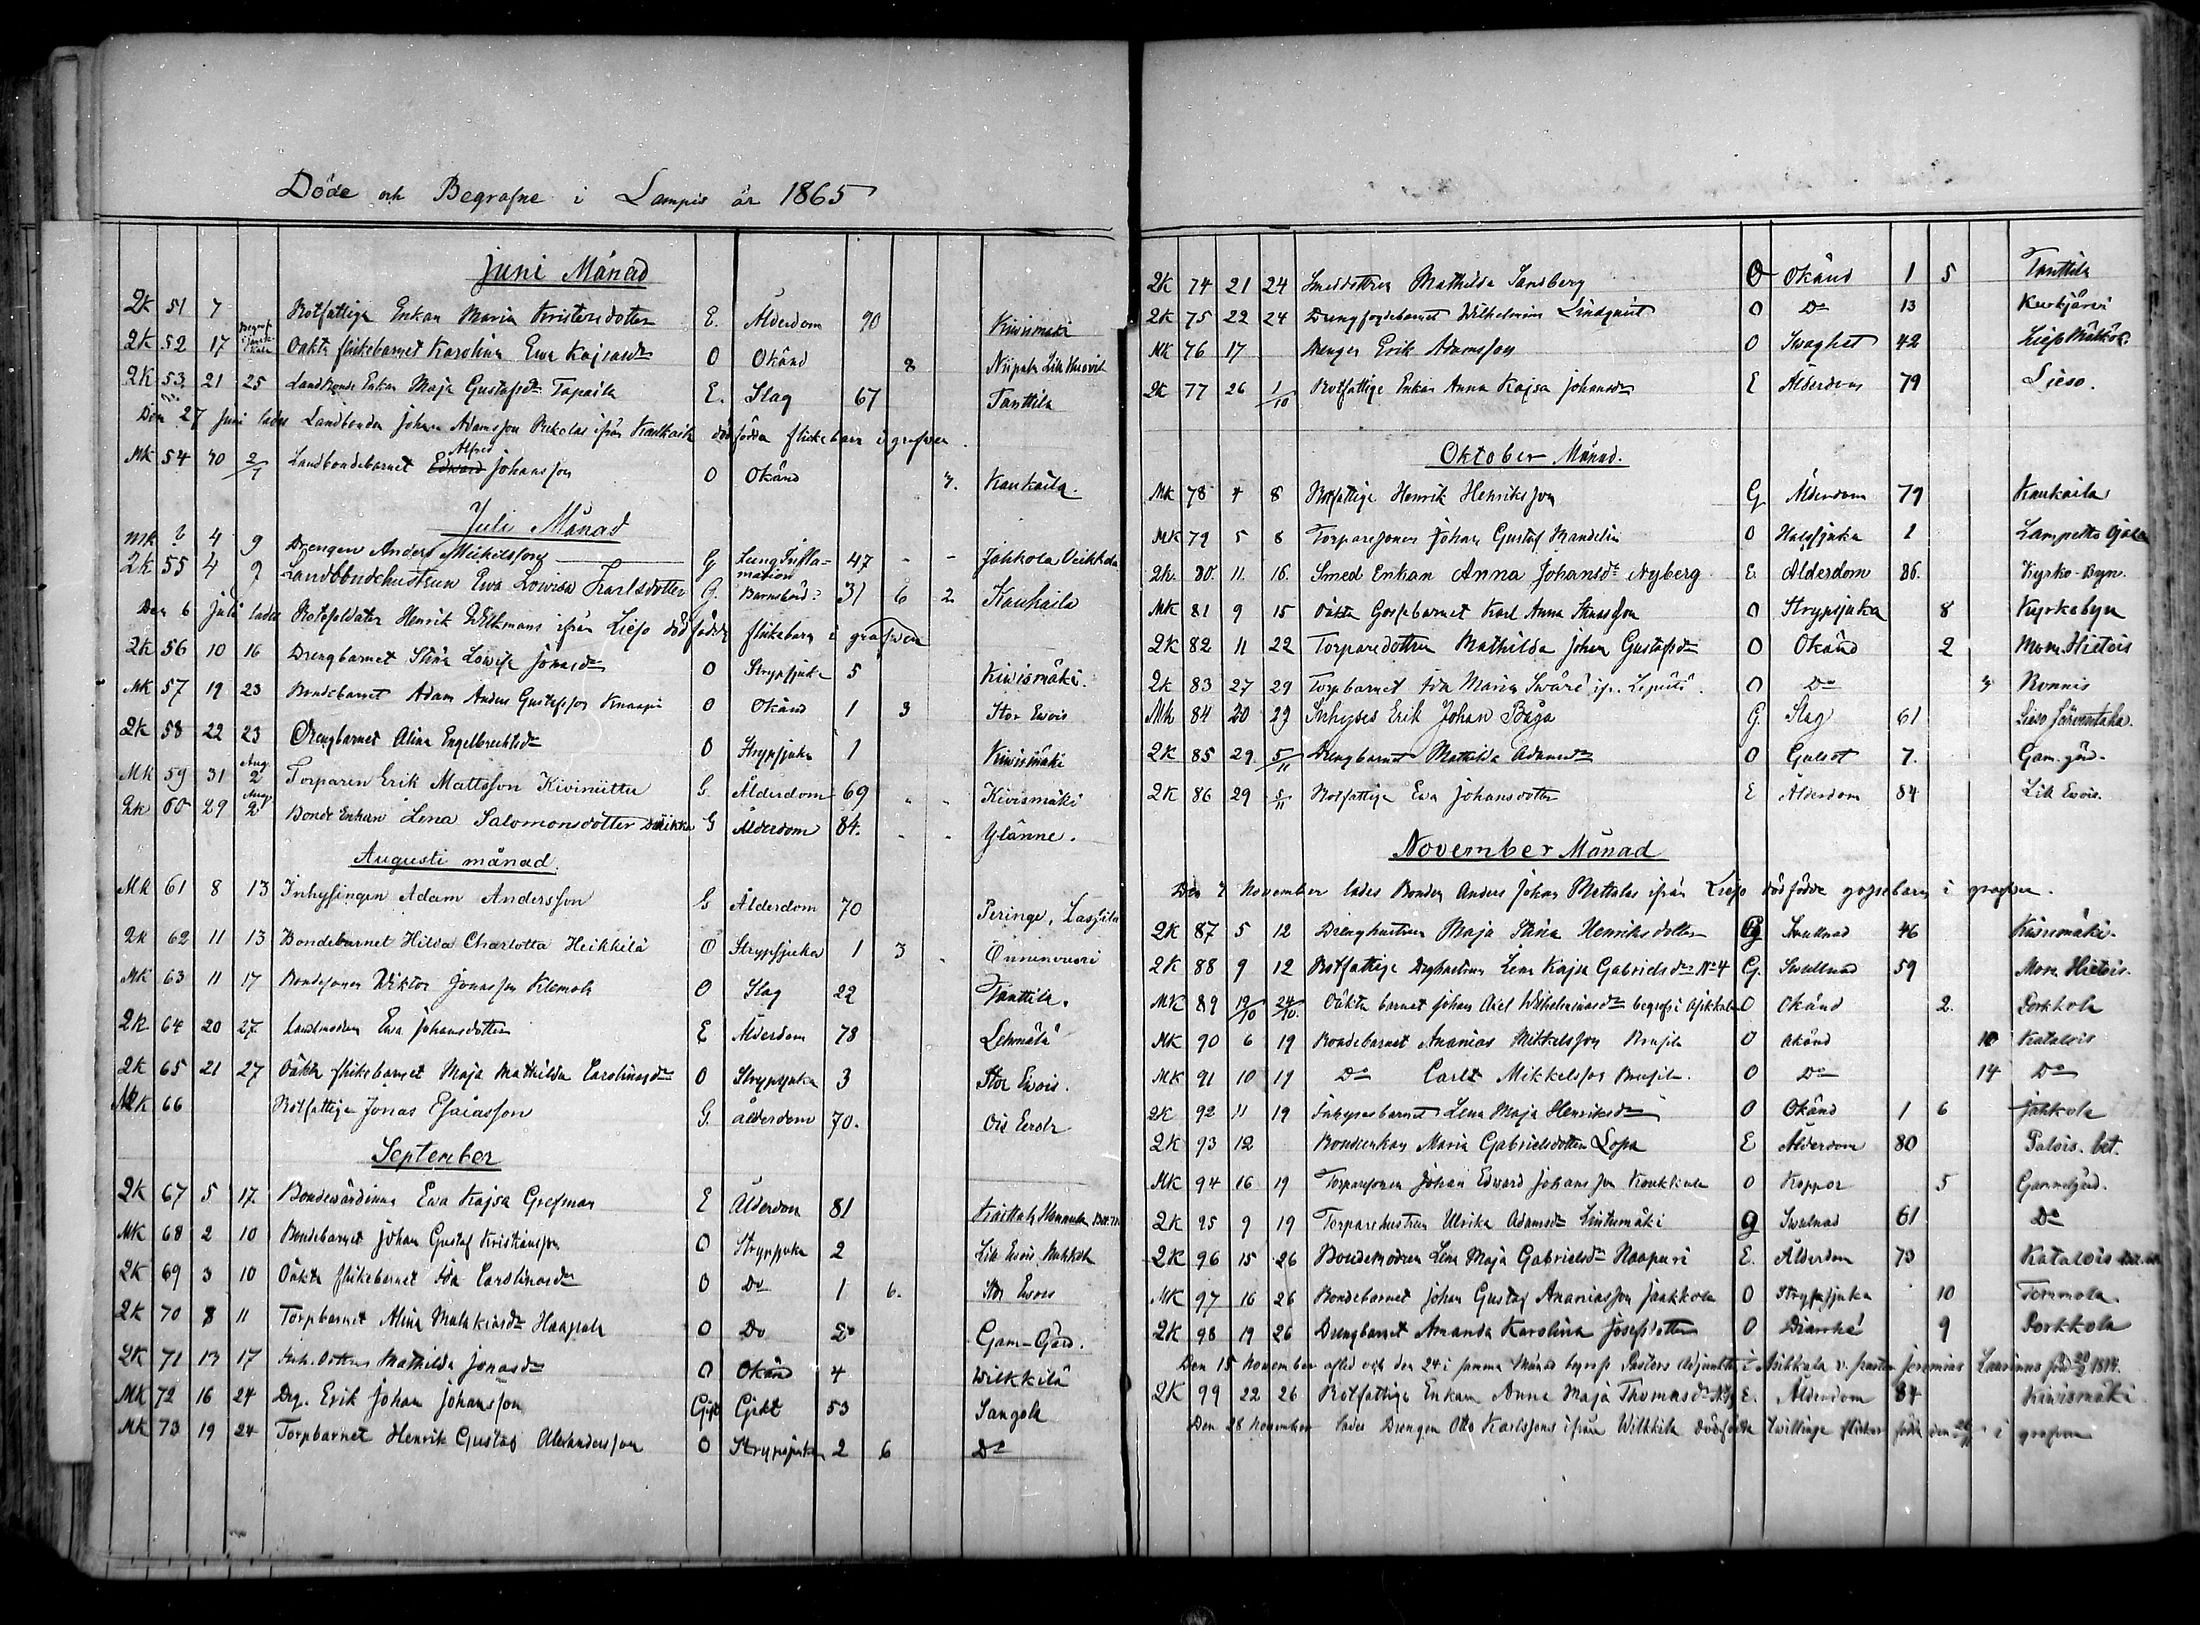 Döde och Begrafne i Lampis år 1865
Juni Månad
2K 51 7 Rotfattige Enkan Maria Kristersdotter E. Ålderdom 90 Kiwismäki
2K 52 17 Oäkta flickebarnet Karolina Ewa Kajsasdr O Okänd 8
2K 53 21 25 Landbonde Enkan Maja Gustafsdr Tapaila E. Slag 67 Tanttila
Den 27 Juni lades Landbonden Johan Adamsson ifrån Kaukaila dödfödda flickebarn i grafwen
MK 54 30 2/7 Landbondebarnet Edward Alfred Johansson O Okänd 7. Kaukaila.
Juli Månad
MK ? 4 9 Drengen Anders Michelsson G Lung Inflamation 47 - - Jahkola Weikkola
2K 55 4 9 Landbondehustrun Ewa Lowisa Karlsdotter G. Barnsbörd? 31 6 2 Kaukaila
Den 6 Juli lades Rotesoldaten Henrik Wilkmans ifrån Lieso dödfödda flickebarn i grafwen
2K 56 10 16 Drengbarnet Stina Lowisa Jonasdr O Strypsjuka 5 Kiwismäki.
MK 57 19 23 Bondebarnet Adam Anders Gustafsson Knaapi O Okänd 1 3 Stor Ewois
2K 58 22 23 Drengbarnet Alina Engelbrechtsdr O Strypsjuka 1 Kiwismäki
MK 59 31 Aug. 2 Torparen Erik Mattsson Kiviniitty G. Ålderdom 69 - - Kivismäki
2K 60 29 Aug. 2 Bonde Enkan Lena Salomonsdotter G Ålderdom 84. - - Ylänne.
Augusti månad.
MK 61 8 13 Inhysingen Adam Andersson G Ålderdom 70 Peringe, Lassila
2K 62 11 13 Bondebarnet Hilda Charlotta Heikkilä O Strypsjuka 1 3 - Onnenvuori
MK 63 11 17 Bondesonen Wiktor Jonasson Klemola O Slag 22 Tanttila.
2K 64 20 27 Landmodren Ewa Johansdotter E Ålderdom 78
2K 65 21 27 Oäkta flickebarnet Maja Mathilda Carolinasdr O Strypsjuka 3 Stor Ewois.
MK 66 Rotfattige Jonas Esaiasson G. ålderdom 70. Ois Eerola
September
2K 67 5 17. Bondewärdinna Ewa Kajsa Grefman E Ålderdom 81
MK 68 2 10 Bondebarnet Johan Gustaf Kristiansson O Strypsjuka 2
2K 69 3 10 Oäkta flickebarnet Ida Carolinasdr O Do 1 6. Stor Ewois
2K 70 8 11 Torpbarnet Alina Malakiasdr Haapala O Do 2 Gam-Gård.
2K 71 13 17 Inh. dottren Mathilda Jonasdr O Okänd 4 Wilkkilä
MK 72 16 24 Drg. Erik Johan Johansson Gift Gikt 53 Sangola
MK 73 19 24 Torpbarnet Henrik Gustaf Alexandersson O Strypsjuka 2 6 Do
2K 74 21 24 Smeddottren Mathilda Sandberg O Okänd 1 5 Tanttila
2K 75 22 24 Drengfogdebarnet Wilhelmina Lindqwist O Do 13 Kurkjärvi
MK 76 17 Drengen Erik Adamsson O Swaghet 42
2K 77 26 1/10 Rotfattige Enkan Anna Kajsa Johansdr E Ålderdom 79 Lieso.
Oktober Månad.
MK 78 4 8 Rotfattige Henrik Henriksson G Ålderdom 79 Kaukaila
MK 79 5 8 Torparesonen Johan Gustaf Mandelin O Halssjuka 1 Lampelto Ojala
2K. 80. 11. 16. Smed Enkan Anna Johansdr Nyberg E. Ålderdom 86. Kyrko-Byn.
MK 81 9 15 Oäkta Gossebarnet Karl Anna O Strypsjuka 8 Kyrkobyn
2K 82 11 22 Torparedottren Mathilda Johan Gustafsdr O Okänd 2 Mom. Hietois
2K 83 27 29 Torpbarnet Ida Maria Swärd O Do 3 Ronnis
MK 84 20 29 Inhyses Erik Johan Båga G. Slag 61 Lieso Järventaka
2K 85 29 5/11 Drengbarnet Mathilda Adamsdr O Gulsot 7. Gam. gård.
2K 86 29 5/11 Rotfattige Ewa Johansdotter E Ålderdom 84 Lill Ewois.
November Månad
Den 7 November lades Bonden Anders Johan Mattalas ifrån Lieso dödfödde gossebarn i grafwen.
2K 87 5 12 Drenghustrun Maja Stina Henriksdotter G Swullnad 46 Kiwismäki.
2K 88 9 12 Rotfattige Drghustrun Lena Kajsa Gabrielsdr No 4 G. Swullnad 59 Mom. Hietois.
MK 89 19/10 24/10. Oäkta barnet Johan Axel Wilhelminasdr begrofs i Asikkala O Okänd 2. Porkkola
MK 90 6 19 Bondebarnet Ananias Mikkelsson O Okänd 10 Kataloìs
MK 91 10 19 Do Carl Mikkelsson O Do 14 Do
2K 92 11 19 Inhysesbarnet Lena Maja Henriksdr O Okänd 1 6 Jahkola
2K 93 12 Bondeenkan Maria Gabrielsdotter Lopa E Ålderdom 80
MK 94 16 19 Torparesonen Johan Edward Johansson O Koppor 5 Gammelgård.
2K 95 9 19 Torparehustrun Ulrika Adamsdr Lintumäki g Swulnad 61 Do
2K 96 15 26 Bondemodren Lena Maja Gabrielsdr Naapuri E. Ålderdom 73 Katalois
MK 97 16 26 Bondebarnet Johan Gustaf Ananiasson Jaakkola O Strypsjuka 10 Tommola.
2K 98 19 26 Drengbarnet Amanda Karolina Josefsdotter O Diarrhé 9 Porkkola
Den 15 November afled och den 24 i samma Månad begrofs Pastors Adjunkten i Asikkala Jeremias Laurinus
2K 99 22 26 Rotfattige Enkan Anna Maja Thomasdr E. Ålderdom 84 Kiwismäki.
Den 28 November lades Drengen Otto Karlssons ifrån Wilkkilä dödfödde twillinge flickor födde den i grafwen